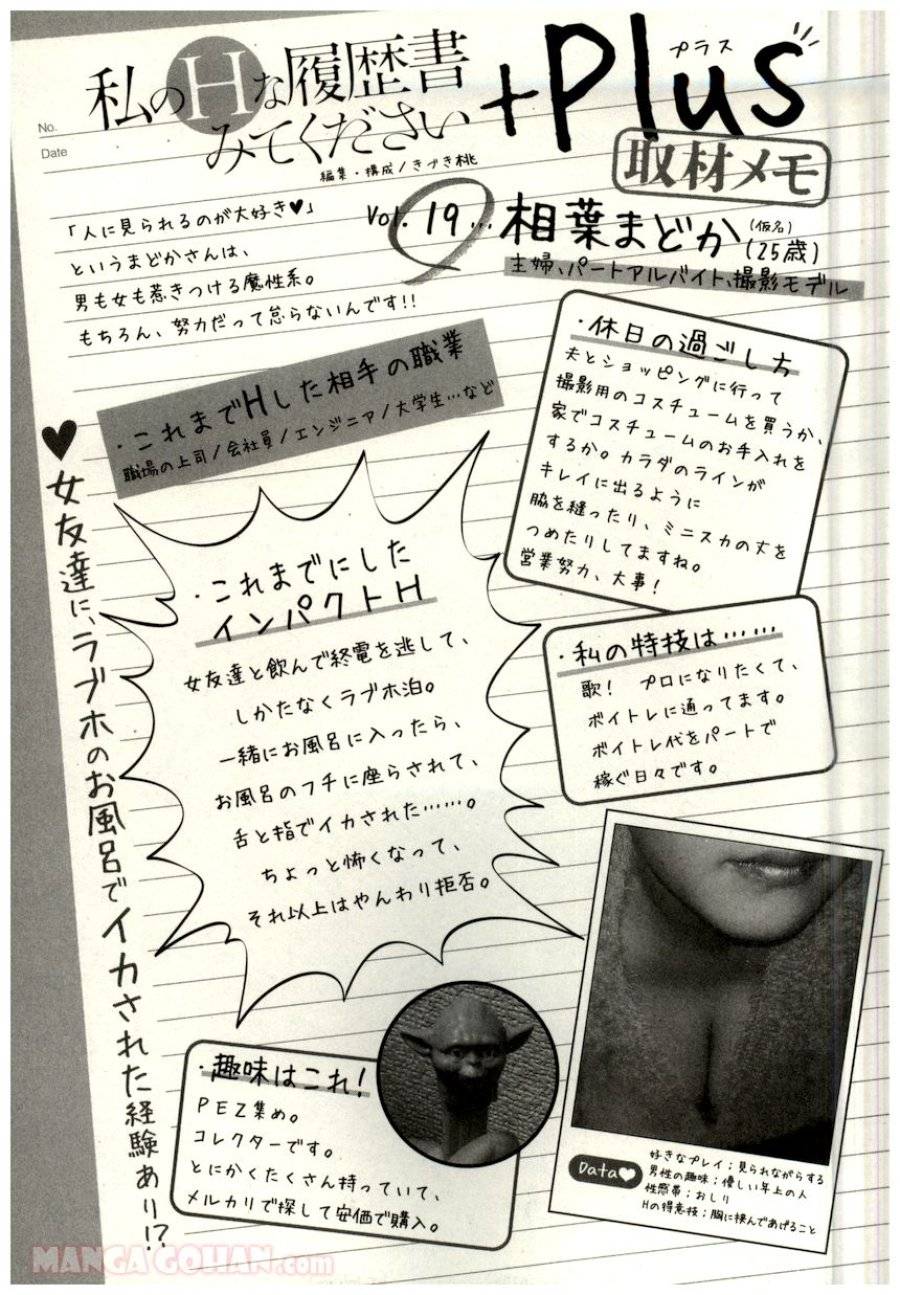 No.
Date
私のHな履歴書
みてください
+Plus
プラス
編集・構成/きづき桃
取材メモ
「人に見られるのが大好き♥」
というまどかさんは、
男も女も惹きつける魔性系。
もちろん、努力だって怠らないんです!!
Vol. 19…
相葉まどか
(仮名)
(25歳)
主婦、パートアルバイト、撮影モデル
・これまでHした相手の職業
職場の上司/会社員/エンジニア/大学生…など
・休日の過ごし方
夫とショッピングに行って
撮影用のコスチュームを買うか、
家でコスチュームのお手入れを
するか。カラダのラインが
キレイに出るように
脇を縫ったり、ミニスカの丈を
つめたりしてますね。
営業努力、大事!
♥女友達に、ラブホのお風呂でイカされた経験あり!?
・これまでにした
インパクトH
女友達と飲んで終電を逃して、
しかたなくラブホ泊。
一緒にお風呂に入ったら、
お風呂のフチに座らされて、
舌と指でイカされた……。
ちょっと怖くなって、
それ以上はやんわり拒否。
・私の特技は……
歌! プロになりたくて、
ボイトレに通ってます。
ボイトレ代をパートで
稼ぐ日々です。
・趣味はこれ!
PEZ集め。
コレクターです。
とにかくたくさん持っていて、
メルカリで探して安価で購入。
Data♥
好きなプレイ;見られながらする
男性の趣味;優しい年上の人
性感帯;おしり
Hの得意技;胸に挟んであげること
MANGA GOHAN.com